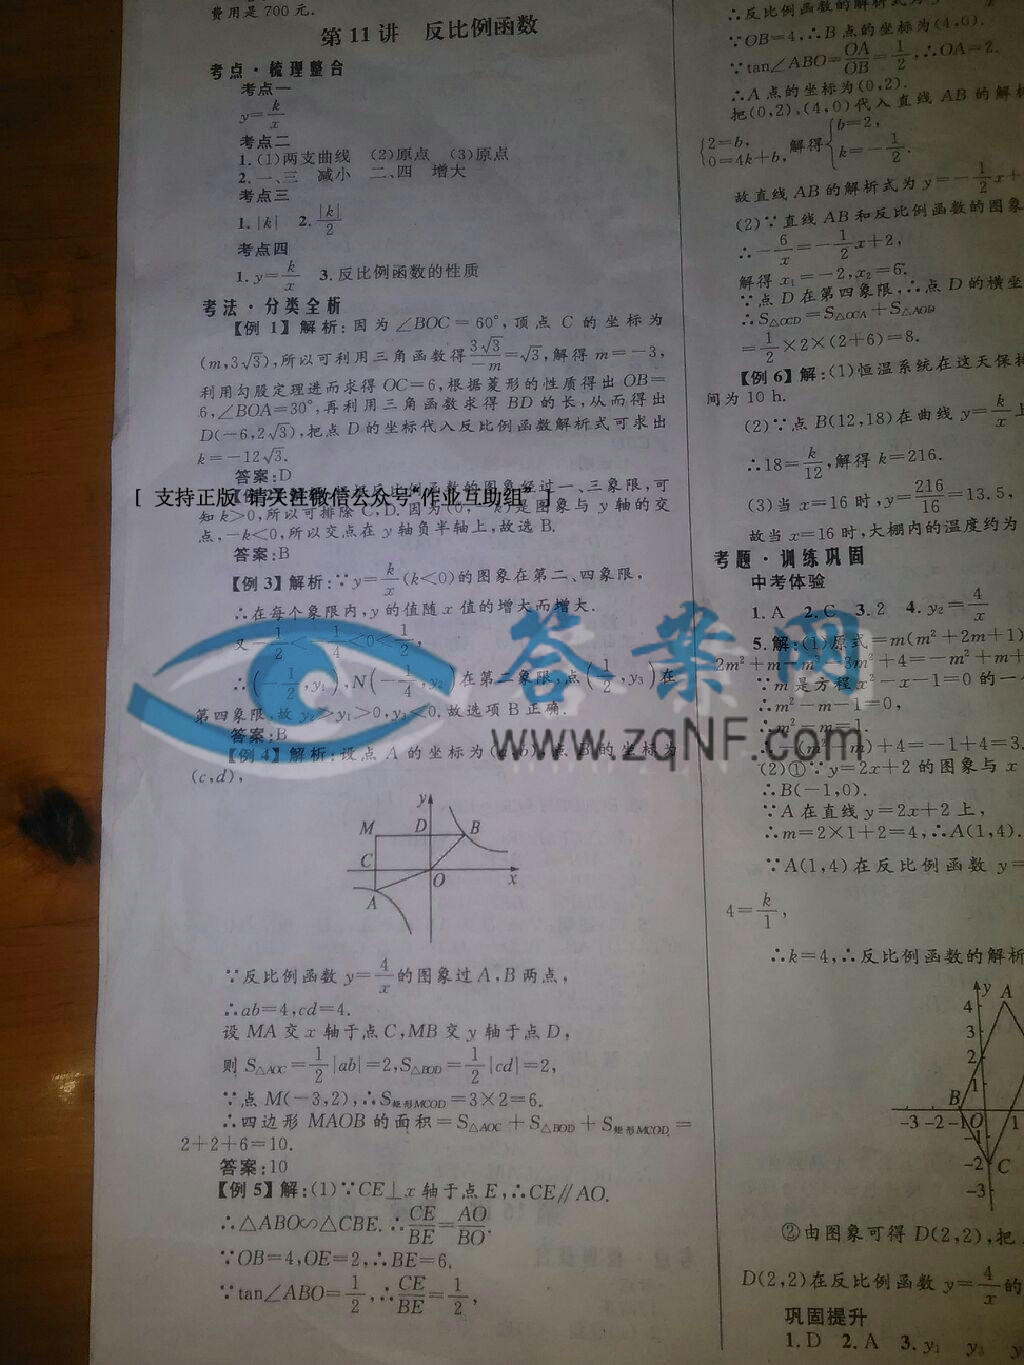 费用是 700 元.
第 11 讲 反比例函数
考点·梳理整合
考点一
y=k/x
考点二
1. (1)两支曲线 (2)原点 (3)原点
2. 一、三 减小 二、四 增大
考点三
1. |k| 2. |k|/2
考点四
1. y=k/x 3. 反比例函数的性质
考法·分类全析
【例 1】解析:因为∠BOC=60°,顶点 C 的坐标为
(m,3√3),所以可利用三角函数得3√3/-m=√3,解得 m=-3,
利用勾股定理进而求得 OC=6,根据菱形的性质得出 OB=
6,∠BOA=30°,再利用三角函数求得 BD 的长,从而得出
D(-6,2√3),把点 D 的坐标代入反比例函数解析式可求出
k=-12√3.
答案:D
[ 支持正版 请关注微信公众号“作业互助组” ]
反比例函数的图象经过一、三象限,可
知 k>0,所以可排除 C,D.因为(0,-k)是图象与 y 轴的交
点,-k<0,所以交点在 y 轴负半轴上,故选 B.
答案:B
【例 3】解析:∵y=k/x(k<0)的图象在第二、四象限,
∴在每个象限内,y 的值随 x 值的增大而增大.
又-1/2<-1/4<0<1/2,
∴(-1/2,y₁),N(-1/4,y₂)在第二象限,点(1/2,y₃)在
第四象限,故 y₂>y₁>0,y₃<0.故选项 B 正确.
答案:B
【例 4】解析:设点 A 的坐标为(a,b),点 B 的坐标为
(c,d),
y
M D B
C O x
A
∵反比例函数 y=4/x的图象过 A,B 两点,
∴ab=4,cd=4.
设 MA 交 x 轴于点 C,MB 交 y 轴于点 D,
则 S△AOC=1/2|ab|=2,S△BOD=1/2|cd|=2,
∵点 M(-3,2),∴S矩形MCOD=3×2=6.
∴四边形 MAOB 的面积=S△AOC+S△BOD+S矩形MCOD=
2+2+6=10.
答案:10
【例 5】解:(1)∵CE⊥x 轴于点 E,∴CE∥AO.
∴△ABO∽△CBE.∴CE/BE=AO/BO.
∵OB=4,OE=2,∴BE=6.
∵tan∠ABO=1/2,∴CE/BE=1/2,
∴反比例函数的解析式为 y=
∵OB=4,∴B 点的坐标为(4,0).
∵tan∠ABO=OA/OB=1/2,∴OA=2.
∴A 点的坐标为(0,2).
把(0,2),(4,0)代入直线 AB 的解析
{2=b, 0=4k+b, 解得{b=2, k=-1/2.
故直线 AB 的解析式为 y=-1/2x+
(2)∵直线 AB 和反比例函数的图象
∴-6/x=-1/2x+2,
解得 x₁=-2,x₂=6.
∵点 D 在第四象限,∴点 D 的横坐
∴S△OCD=S△OCA+S△AOD
=1/2×2×(2+6)=8.
【例 6】解:(1)恒温系统在这天保持
间为 10 h.
(2)∵点 B(12,18)在曲线 y=k/x上
∴18=k/12,解得 k=216.
(3)当 x=16 时,y=216/16=13.5,
故当 x=16 时,大棚内的温度约为
考题·训练巩固
中考体验
1. A 2. C 3. 2 4. y₂=4/x
5. 解:(1)原式=m(m²+2m+1)
∵m 是方程 x²-x-1=0 的一个
∴m²-m-1=0,
∴m²-m=1.
(m²-m)+4=-1+4=3.
(2)①∵y=2x+2 的图象与 x
∴B(-1,0).
∵A 在直线 y=2x+2 上,
∴m=2×1+2=4,∴A(1,4).
∵A(1,4)在反比例函数 y=
4=k/1,
∴k=4,∴反比例函数的解析
y A
4
3
2
1
B
-3 -2 -1 O 1
-1
-2 C
-3
②由图象可得 D(2,2),把
D(2,2)在反比例函数 y=4/x的
巩固提升
1. D 2. A 3. y₁ y₃
答案网
www.zqNF.com